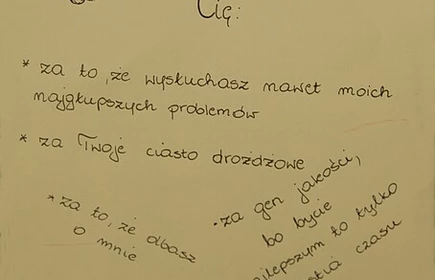 Cię:
* za to, że wysłuchasz nawet moich
najgłupszych problemów
* za Twoje ciasto drożdżowe
* za to, że dbasz
o mnie
• za gen jakości,
bo bycie
najlepszym to tylko
czasu